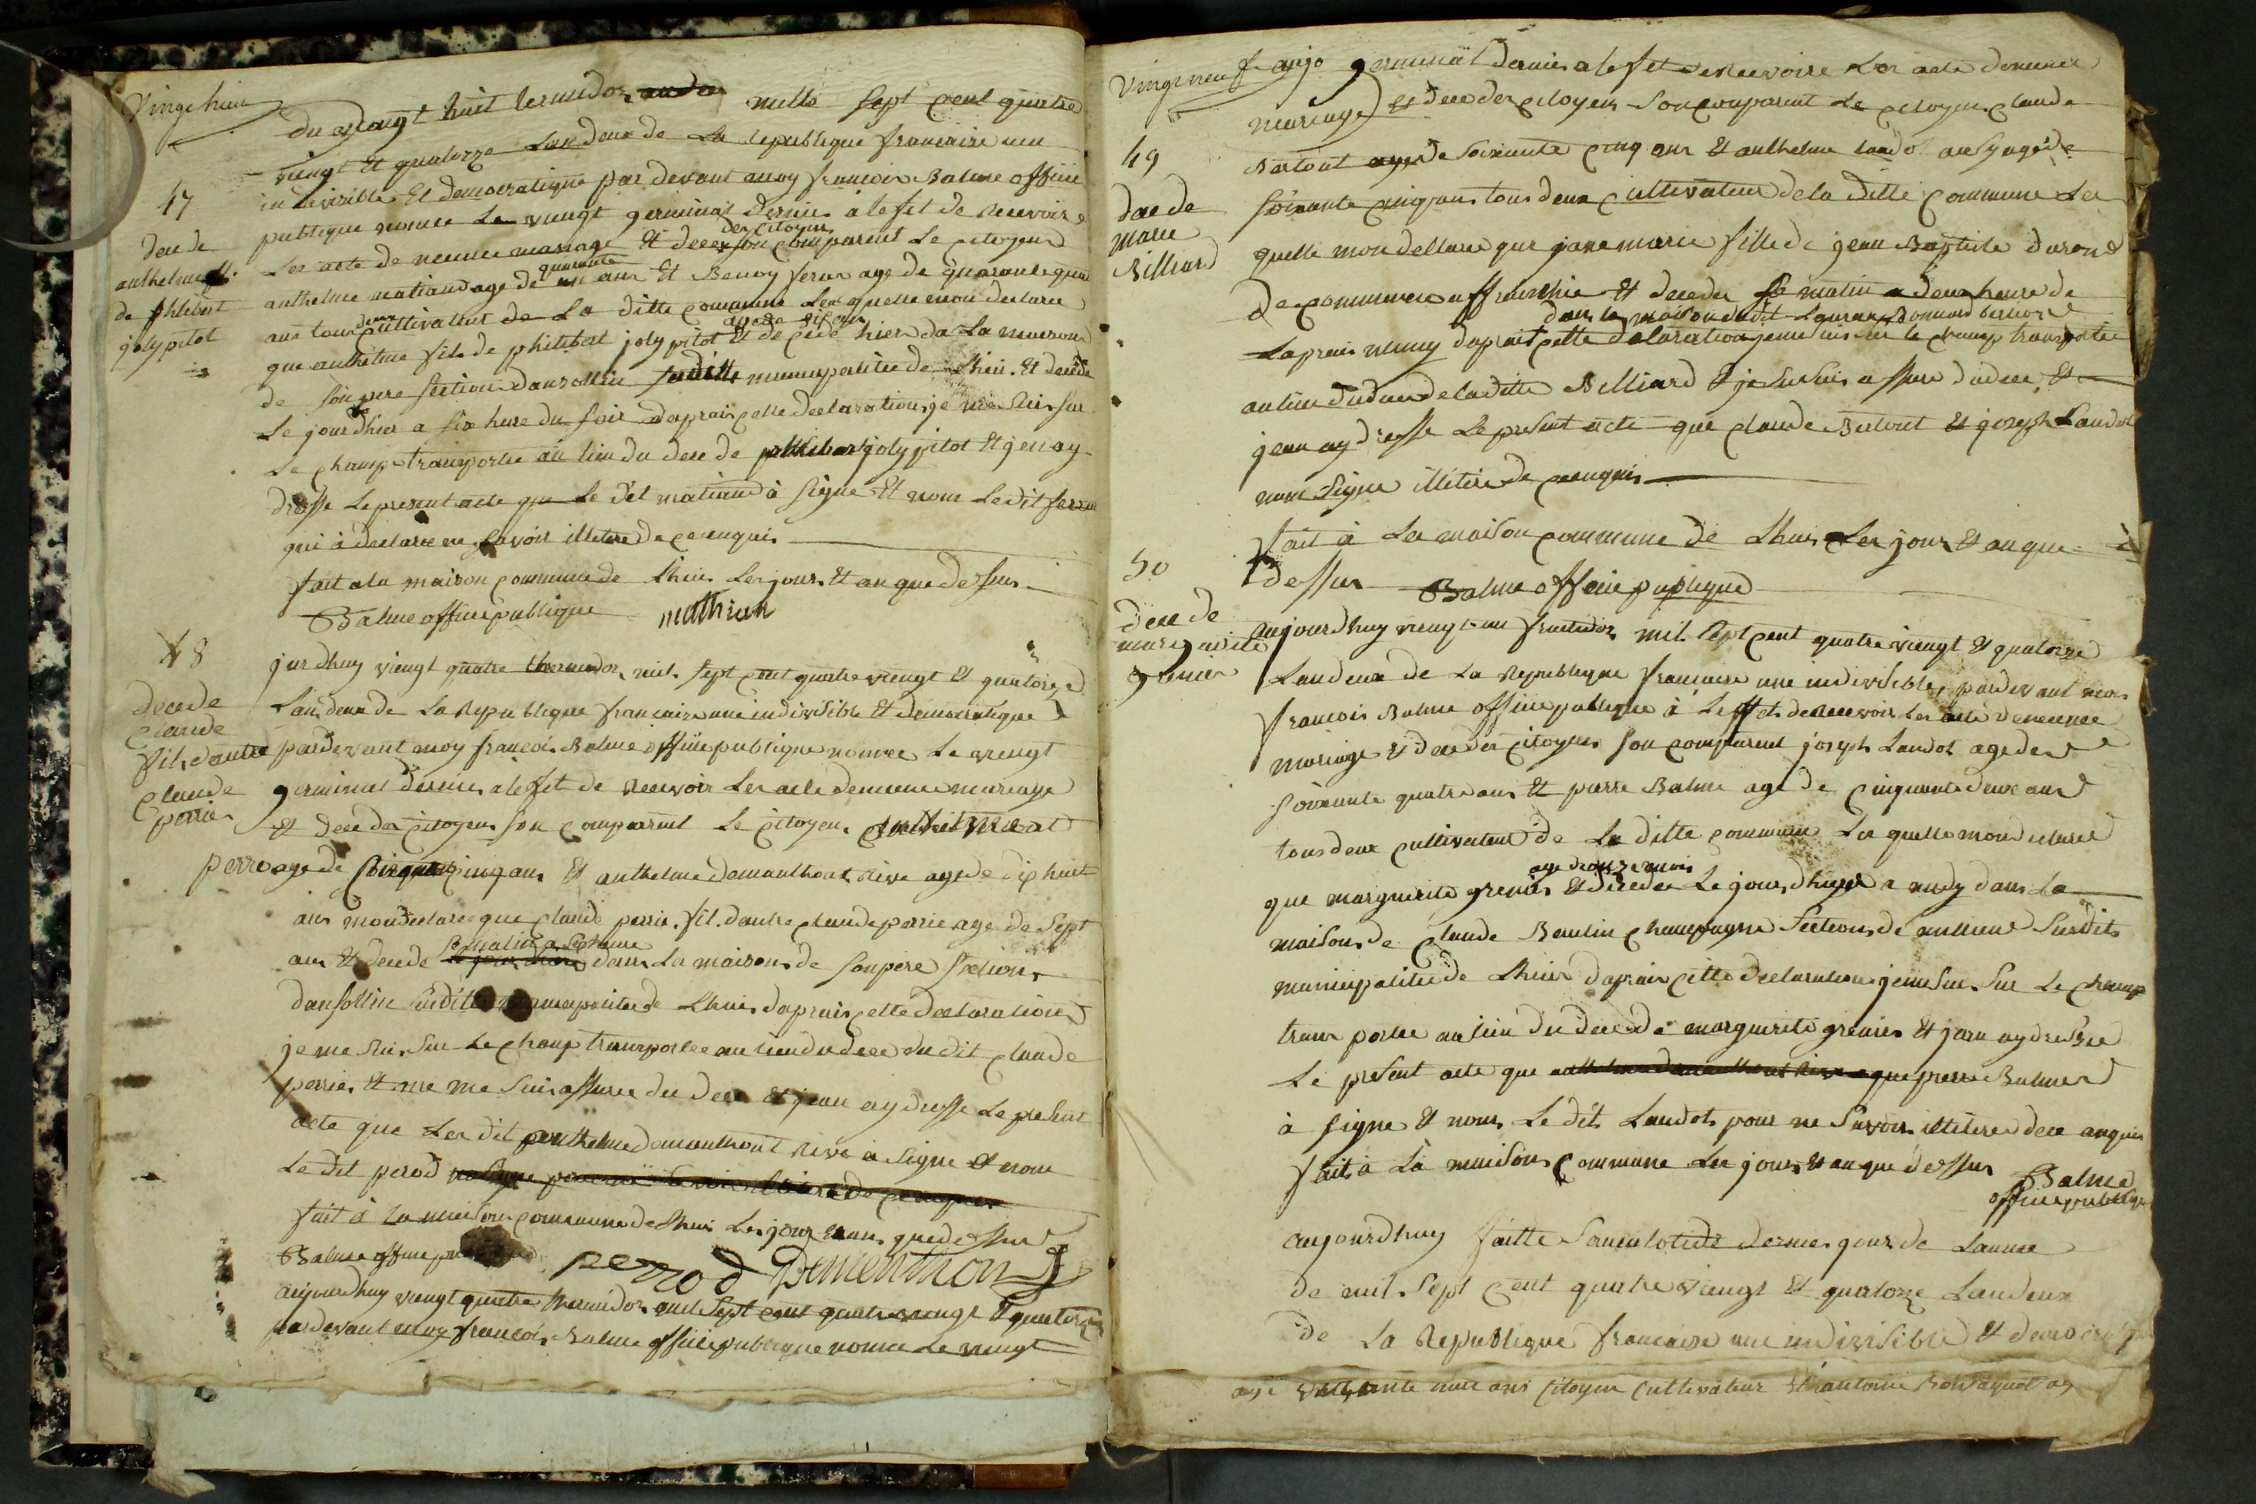 Vingt huit
du vingt huit termidor mille sept cent quatre
vingt et quatorze lan deux de La republique francaise une
indivisible et democratique par devant moy francois Balme office
47
publique nomee Le vingt germinal dernier a lefet de recevoir
dece de
anthelme fils
de philibert
joly pitot
Les acte de mariage et dece des citoyens son comparus Le citoyen
anthelme matiand age de quarante un ans et Benoy ferus age de quarante quatre
ans tous deux cultivateur de La ditte commune Les quelle mon declaree
que anthelme fils de philibert joly pitot age de dix ans et de cede hier da La maison
de son pere section dansollin municipalitee de Lhuis et decede
Le jour dhier a six heure du soir daprais cette declaration je me suis sur
Le champ transportee au lieu du dece de philibert joly pitot et jen ay
dresse Le present acte que Le dit matiand à signe et nom Le dit ferus
qui à declaree ne savoir illetere de ce enquis
fait a la maison commune de Lhuis Les jours et an que dessus
Balme office publique mathian
48
dece de
claude
fils dautre
claude
perrie
jordhuy vingt quatre thermidor mil sept cent quatre vingt et quatorze
Lan deux de La Republique francaise une indivisible et democratique
pardevant moy francois Balme office publique nomee Le vingt
germinal dernier a lefet de recevoir Les acte de mariage
et dece des citoyens son comparus Le citoyen
perro age de cinq ans et anthelme demanthont Rive age de dix huit
ans mon declaree que claude perrie fils dautre claude perrie age de sept
ans et decede ce matin a sept heure dans La maison de son pere section
dansollin suditte municipalitee de Lhuis daprais cette declaration
je me suis sur Le champ transportee au lieu du dece du dit claude
perrie et me suis assuree du dece et jean ay dresse Le present
acte que Les dit anthelme demanthont Rive à signe et nom
Le dit perod
fait à La maison commune de Lhuis Les jour et an que dessus
Balme office
perrod Dementhon
aujourdhuy vingt quatre thermidor mil sept cent quatre vingt et quatorze
par devant moy francois Balme office publique nomee Le vingt
Vingt neuf
germinal dernier a lefet de recevoir Les acte de
mariage et dece des citoyens son comparut Le citoyen claude
49
dece de
marie
Billiard
Bartout age de soixante cinq ans et anthelme Landot ausy age de
soixante cinq ans tous deux cultivateur de la ditte commune Les
quelle mon dellaree que jane marie fille de jean Baptiste durond
de commune affranchie et decedee ce matin a deux heure de
dans la maison du dit Laurans Bonnard
Laprais daprait cette dalaration je me suis sur le champ transportee
au lieu du dece de la ditte Billiard et je me suis assure du dece et
jean ay dresse Le present acte que claude Bartout et joseph Landot
nom signe illitere de ce enquis
fait à La maison commune de Lhuis Les jours et an que
dessus Balme office publique
50
dece de
margarite
grenier
aujourdhuy vingt un fructidor mil sept cent quatre vingt et quatorze
Lan deux de La republique francaise une indivisible, pardevant moy
francois Balme office publique à Leffet de recevoir Les acte de
mariage et dece des citoyens son comparus joseph Landot age de
soixante quatre ans et pierre Balme age de cinquante deux ans
tous deux cultivateur de La ditte commune Les quelle mon declaree
que margueritte grenier age de onze mois et decedee Le jour dhuy a mydy dans La
maison de claude Baulin champagne section de millieu susdit
municipalitee de Lhuis daprais cette declaration je me suis sur Le champ
trans portee au lieu du dece de marguerite grenier et jean ay dressee
Le present acte que que pierre Balme
à signe et nom Le dit Landot pour ne savoir illitere dece anquis
fait à La maison commune Les jours et an que dessus Balme
office publique
aujourdhuy faitte sanculotide dernier jours de Lannee
de mil sept cent quatre vingt et quatorze Landeux
de La Republique francaise une indivisible et
age soixante ans citoyen cultivateur et antoine